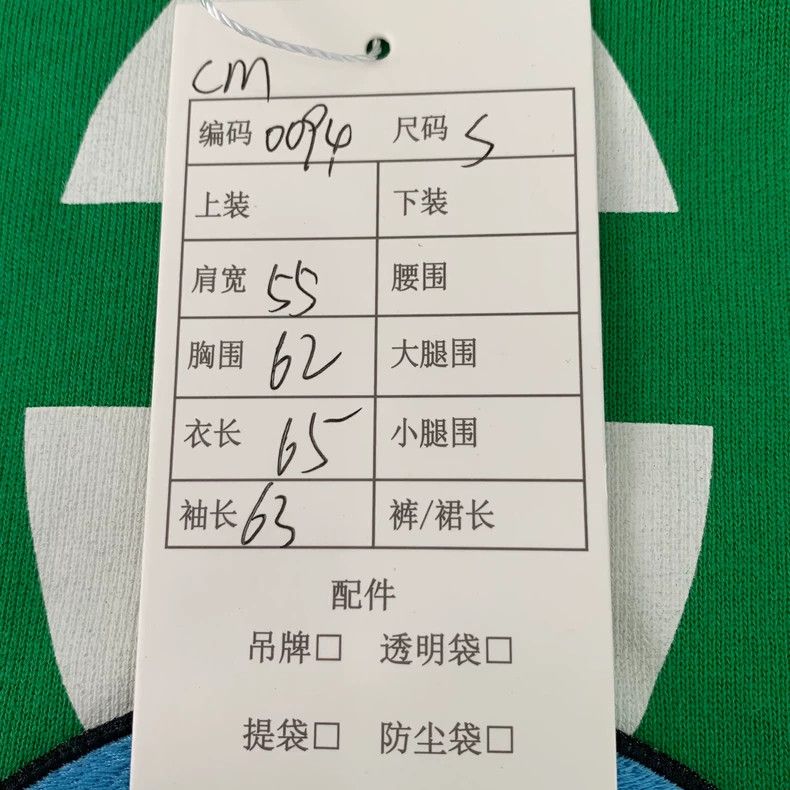 CM
编码 0094 尺码 S
上装 下装
肩宽 55 腰围
胸围 62 大腿围
衣长 65 小腿围
袖长 63 裤/裙长
配件
吊牌□ 透明袋□
提袋□ 防尘袋□